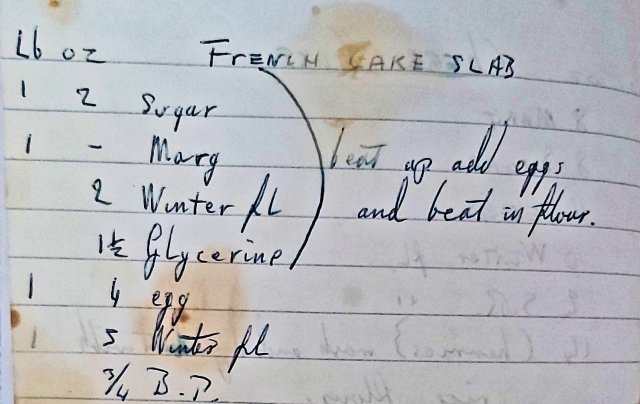 Lb oz FRENCH CAKE SLAB
1 2 Sugar
1 - Marg
2 Winter fL
1½ Glycerine
beat up add eggs
and beat in flour.
1 4 egg
1 5 Winter fL
3/4 B.P.